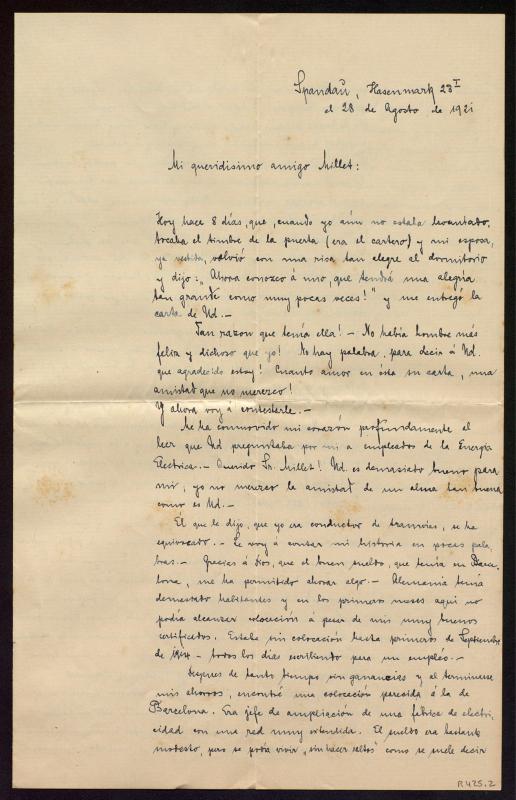 Spandau, Hasenmark 23 I
el 28 de Agosto de 1921
Mi queridísimo amigo Millet:
Hoy hace 8 días, que, cuando yo aún no estaba levantado,
tocaba el timbre de la puerta (era el cartero) y mi esposa,
ya vestida, volvió con una risa tan alegre al dormitorio
y dijo: „Ahora conozco á uno, que tendrá una alegría
tan grande como muy pocas veces!" y me entregó la
carta de Ud.-
Tan razon que tenía ella! - No había hombre más
feliz y dichoso que yo! No hay palabra, para decir á Ud.
que agradecido estoy! Cuanto amor en ésta su carta, una
amistad que no merezco!
Y ahora voy á contestarle.-
Me ha conmovido mi corazón profundamente el
leer que Ud preguntaba por mi a empleados de la Energía
Electrica.- Querido Sr. Millet! Ud. es demasiado bueno para
mi, yo no merezco la amistad de un alma tan buena
como es Ud.-
El que le dijo, que yo era conductor de tranvias, se ha
equivocado.- Le voy á contar mi historia en pocas pala-
bras.- Gracias á Dios, que el buen sueldo, que tenía en Barce-
lona, me ha permitido ahorar algo.- Alemania tenía
demasiado habitantes y en los primeros meses aqui no
podía alcanzar colocación á pesar de mis muy buenos
certificados. Estaba sin colocación hasta primeros de Septiembre
de 1914 - todos los días escribiendo para un empleo.-
Despues de tanto tiempo sin ganancias y al terminarse
mis ahorros, encontré una colocación parecida á la de
Barcelona. Era jefe de ampliación de una fabrica de electri-
cidad con una red muy extendida. El sueldo era bastante
modesto, pero se podía vivir „sin hacer saltos" como se suele decir
R 425.2